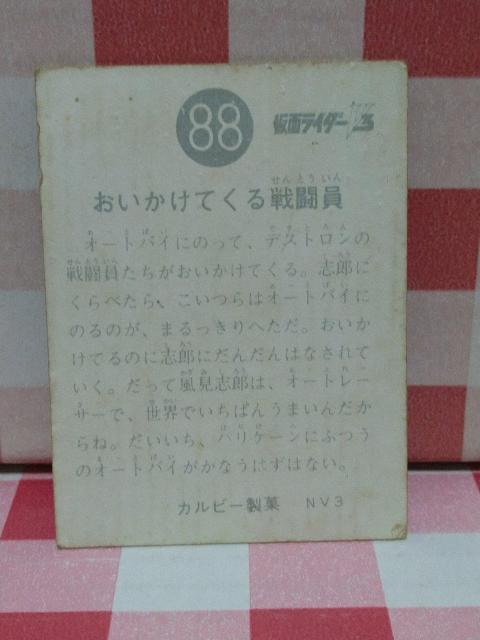 88 仮面ライダーV3
おいかけてくる戦闘員
オートバイにのって、デストロンの
戦闘員たちがおいかけてくる。志郎に
くらべたら、こいつらはオートバイに
のるのが、まるっきりへただ。おいか
けてるのに志郎にだんだんはなされて
いく。だって風見志郎は、オートレー
サーで、世界でいちばんうまいんだか
らね。だいいち、ハリケーンにふつう
のオートバイがかなうはずはない。
カルビー製菓 NV3